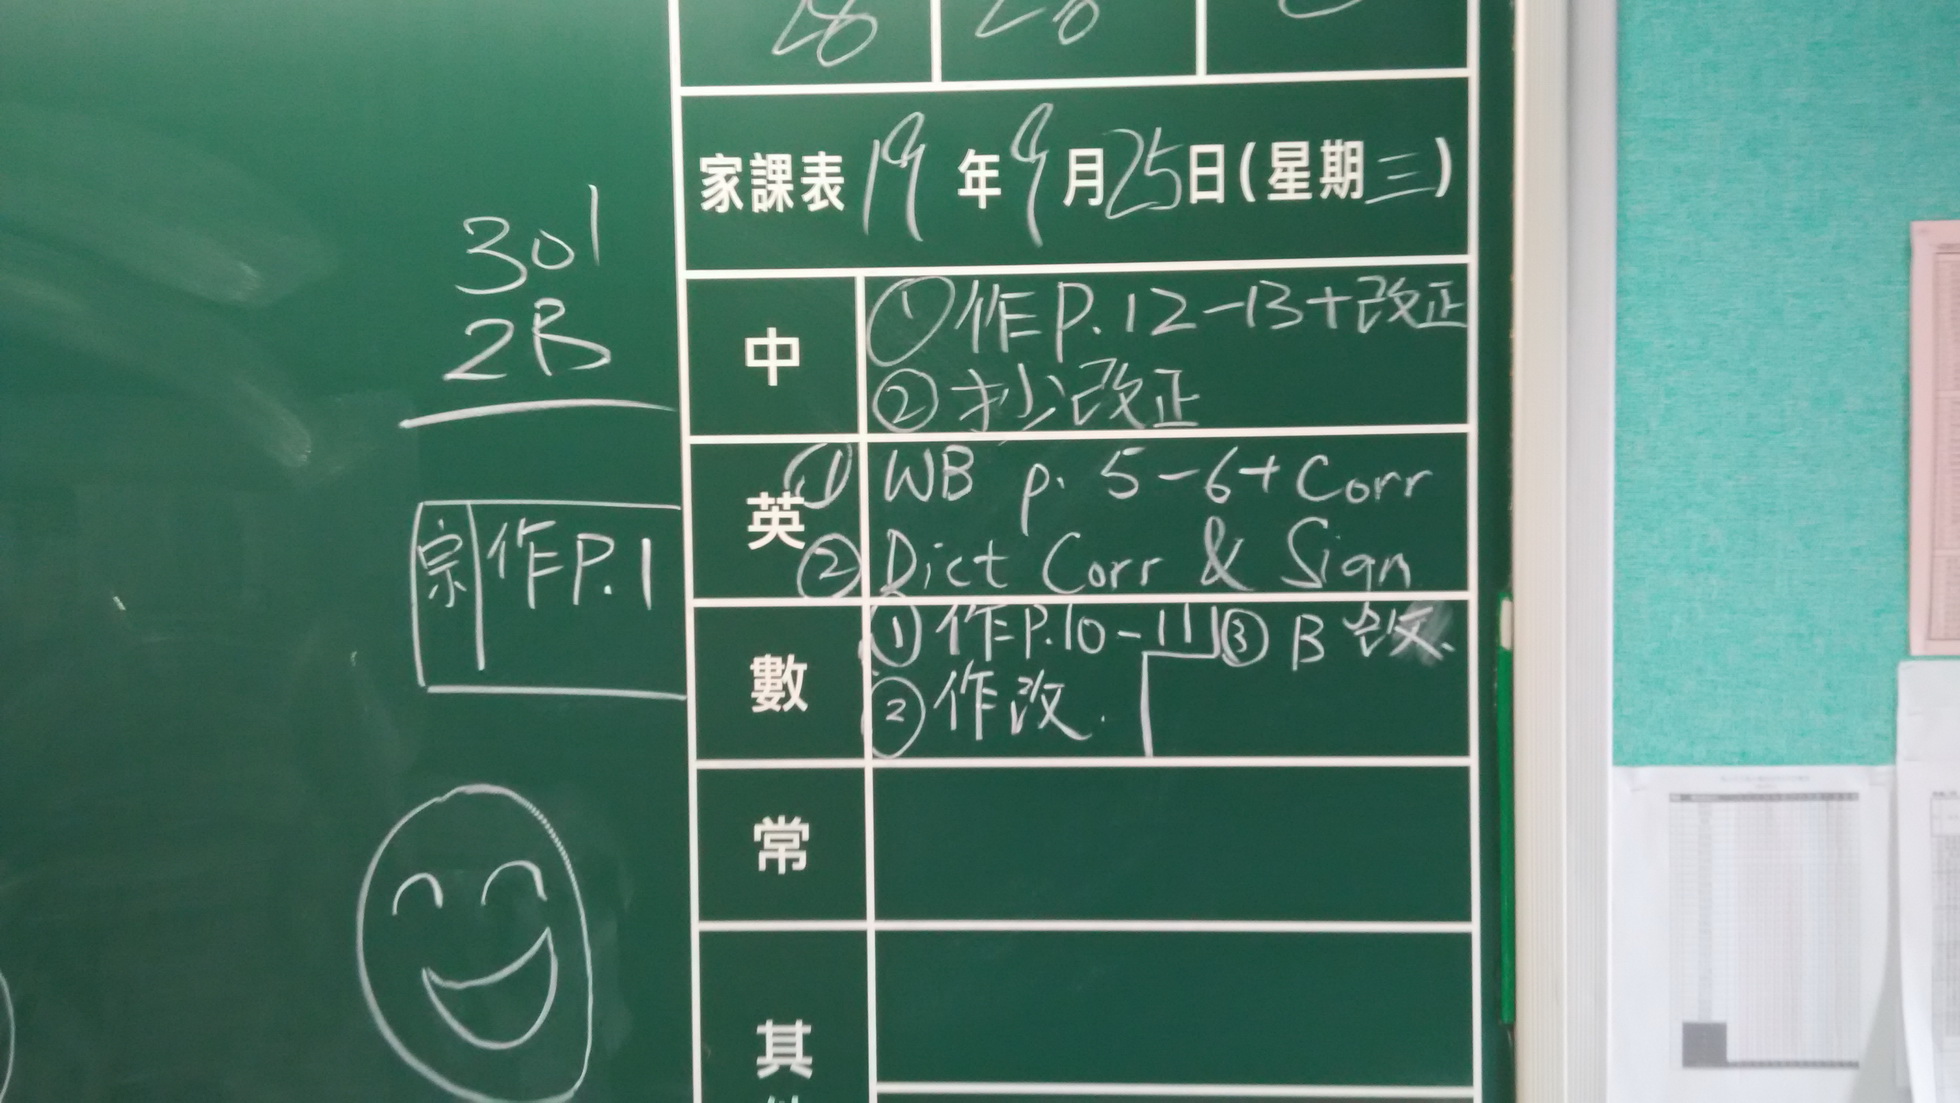 28 28
家課表 19 年 9 月 25 日 (星期 三)
301
2B
中 ① 作 P.12-13+改正
② 抄改正
英 ① WB p. 5-6+ Corr
② Dict Corr & Sign
宗 作 P.1
數 ① 作 P.10-11 ③ B 改.
② 作改.
常
其